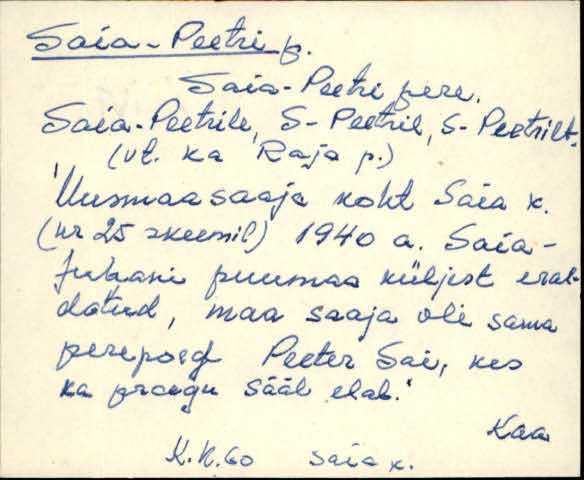 Saia-Peetri p.
Saia-Peetri pere.
Saia-Peetrile, S-Peetril, S-Peetrilt.
(vt. ka Raja p.)
'Uusmaasaaja koht Saia k.
(nr 25 skeemil) 1940 a. Saia-
Juhani puumaa küljest eral-
datud, maa saaja oli sama
perepoeg Peeter Sai, kes
ka praegu sääl elab.'
Kaa
K.N.60 Saia k.